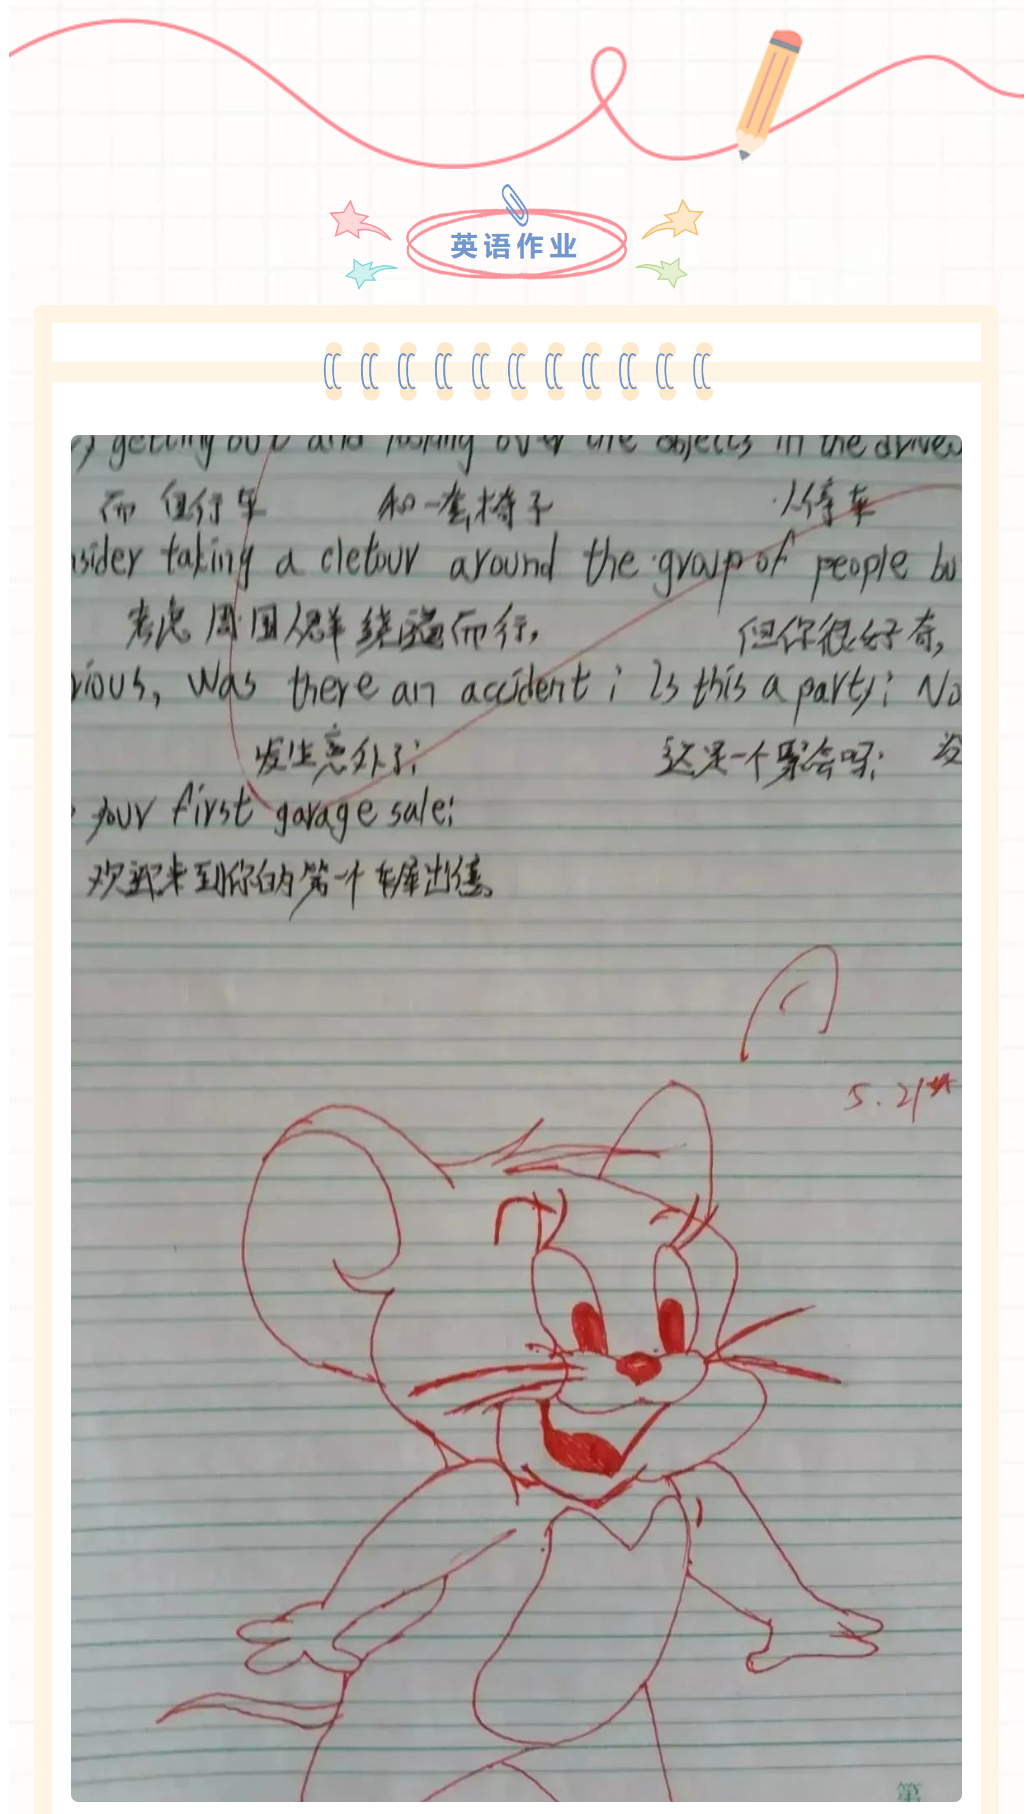 英语作业
getting out and looking over the objects in the drivew
而 但行车 和一套椅子 人停车
nsider taking a cletour around the group of people bu
考虑周围人群绕道而行, 但你很好奇,
rious, Was there an accident ; Is this a party; No
发生意外了; 这是一个聚会吗; 没
your first garage sale;
欢迎来到你的第一个车库出售。
5.21
第